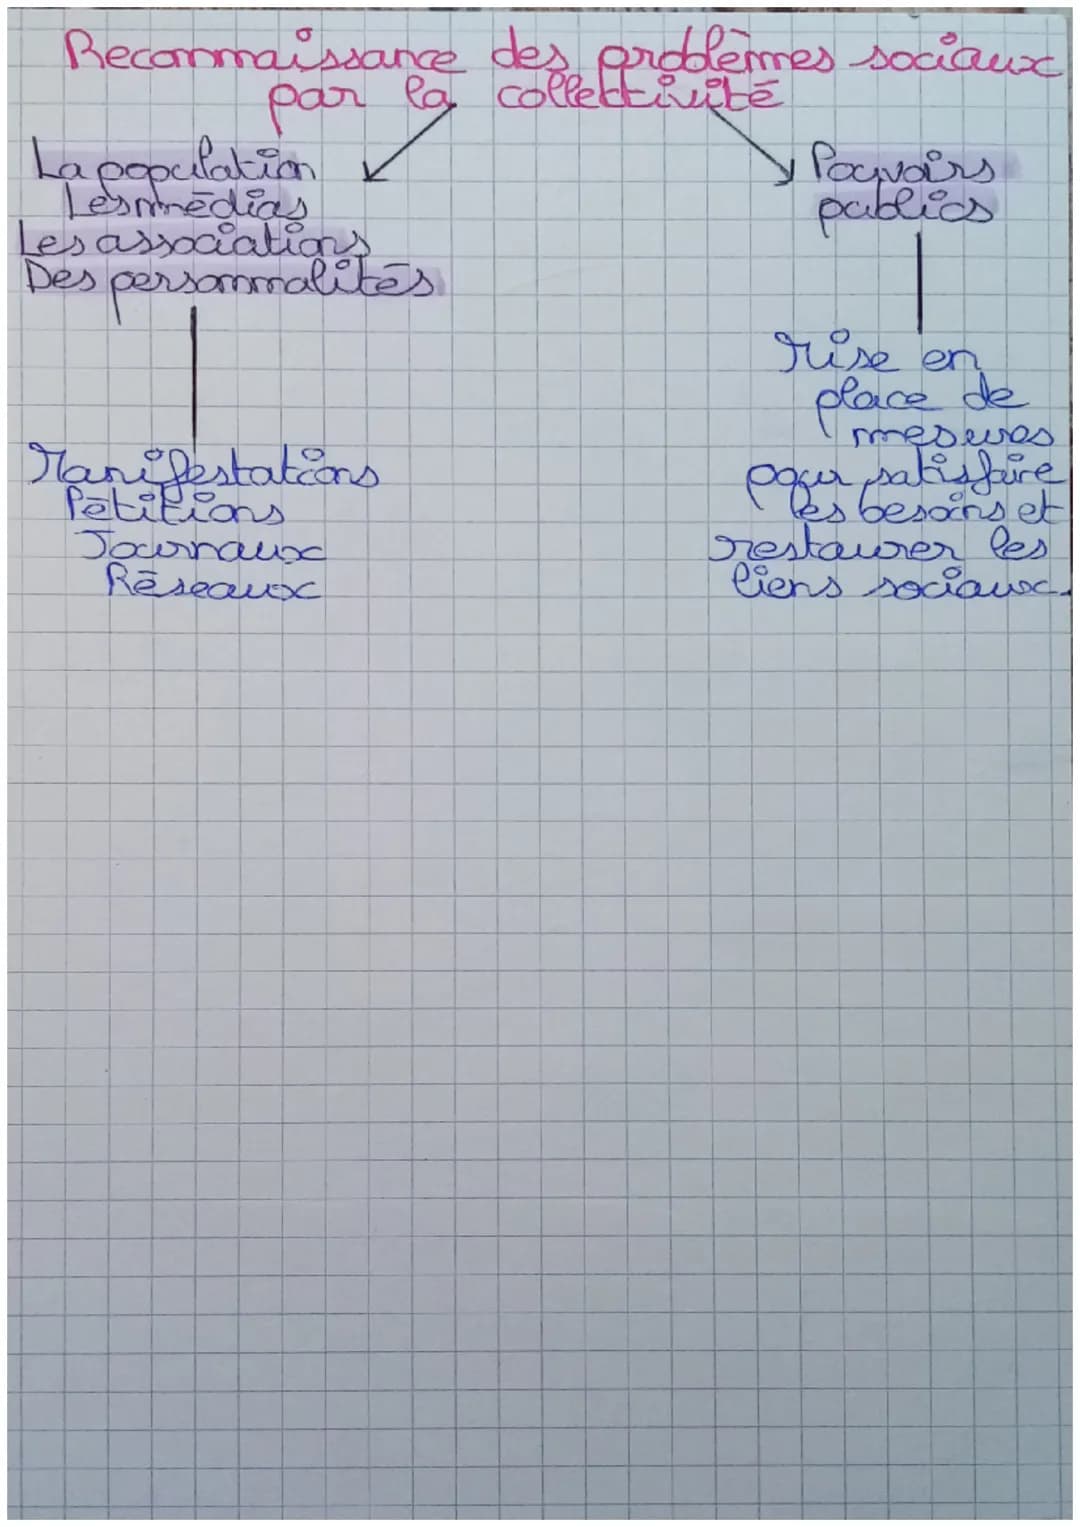 Reconnaissance des problèmes sociaux
par la collectivité
La population
Les médias
Les associations
Des personnalités
Manifestations
Pétitions
Journaux
Réseaux
Pouvoirs
publics
Mise en
place de
mesures
pour satisfaire
les besoins et
restaurer les
liens sociaux.